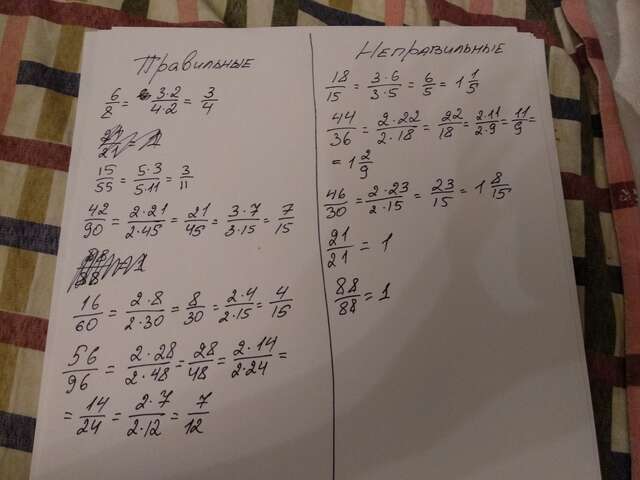 Правильные
6/8 = 3·2/4·2 = 3/4
21/21 = 1
15/55 = 5·3/5·11 = 3/11
42/90 = 2·21/2·45 = 21/45 = 3·7/3·15 = 7/15
16/60 = 2·8/2·30 = 8/30 = 2·4/2·15 = 4/15
56/96 = 2·28/2·48 = 28/48 = 2·14/2·24 =
= 14/24 = 2·7/2·12 = 7/12
Неправильные
18/15 = 3·6/3·5 = 6/5 = 1 1/5
44/36 = 2·22/2·18 = 22/18 = 2·11/2·9 = 11/9 =
= 1 2/9
46/30 = 2·23/2·15 = 23/15 = 1 8/15
21/21 = 1
88/88 = 1